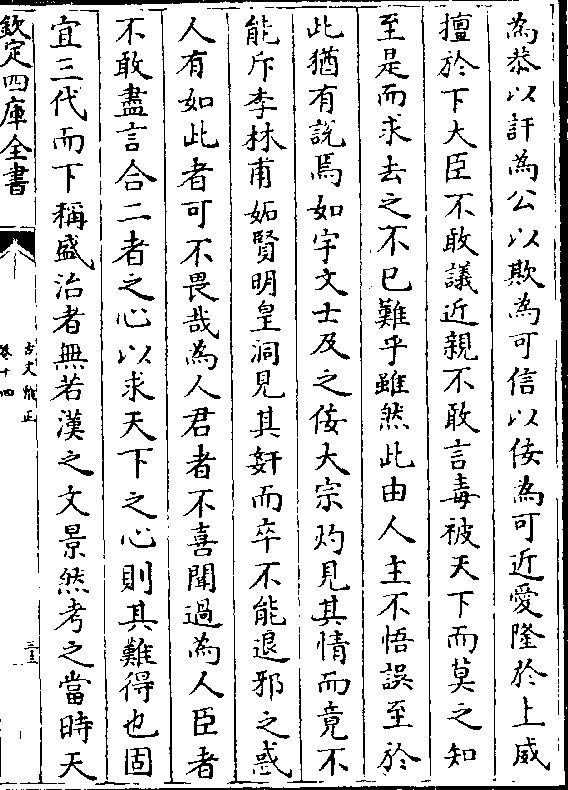 為恭以訐為公以欺為可信以佞為可近愛隆於上威
擅於下大臣不敢議近親不敢言毒被天下而莫之知
至是而求去之不已難乎雖然此由人主不悟誤至於
此猶有說焉如宇文士及之佞大宗灼見其情而竟不
能斥李林甫妬賢明皇洞見其姧而卒不能退邪之惑
人有如此者可不畏哉為人君者不喜聞過為人臣者
不敢盡言合二者之心以求天下之心則其難得也固
宜三代而下稱盛治者無若漢之文景然考之當時天
欽定四庫全書
古文雅正
卷十四
三十三